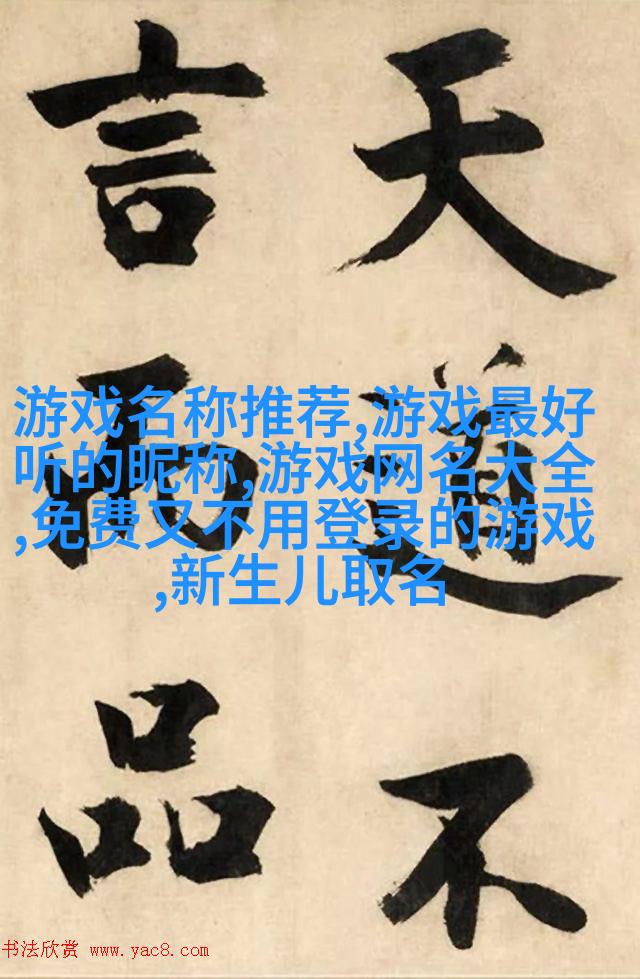 天道不
言而品
游戏名称推荐,游戏最好
听的昵称,游戏网名大全
,免费又不用登录的游戏
,新生儿取名
书法欣赏 www.yac8.com